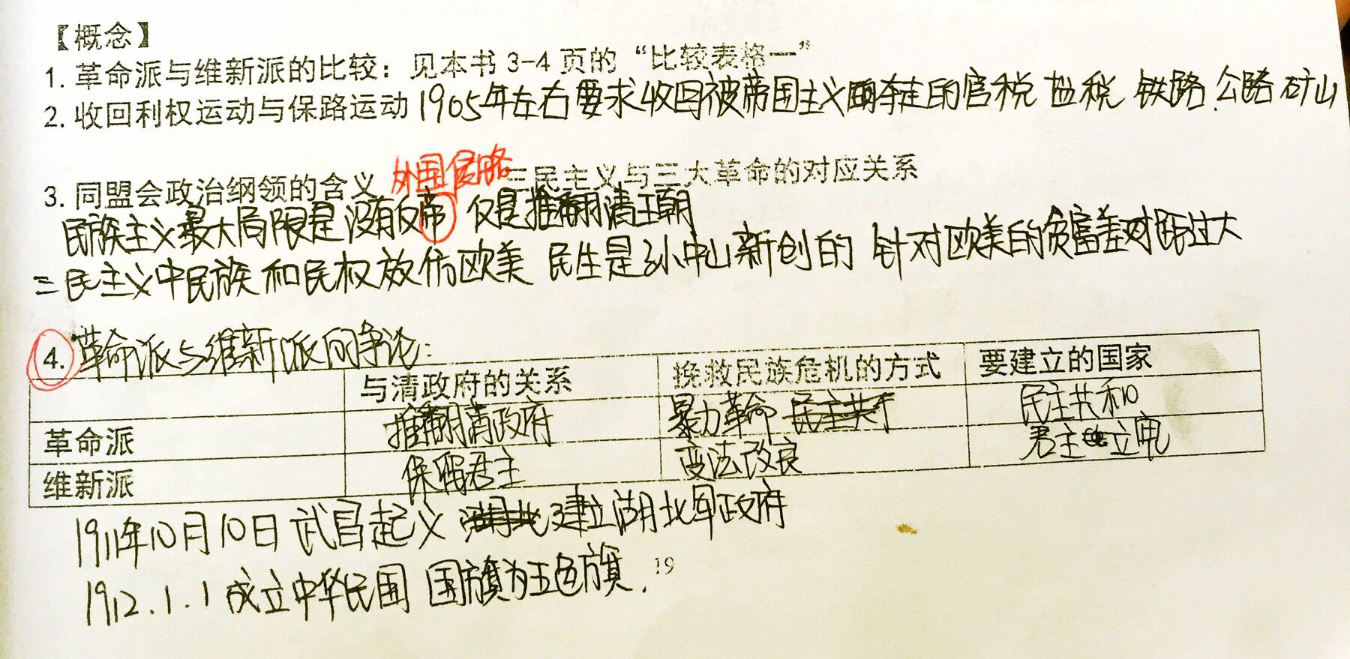 【概念】
1. 革命派与维新派的比较：见本书 3-4 页的“比较表格一”
2. 收回利权运动与保路运动 1905年左右要求收回被帝国主义夺走的官税 盐税 铁路.公路 矿山
外国侵略
3. 同盟会政治纲领的含义 三民主义与三大革命的对应关系
民族主义最大局限是没有反帝 仅是推翻清王朝
三民主义中民族和民权放仿欧美 民生是孙中山新创的 针对欧美的贫富差对距过大
4. 革命派与维新派间争论：
与清政府的关系 挽救民族危机的方式 要建立的国家
革命派 推翻清政府 暴力革命 民主共和
维新派 保留君主 变法改良 君主立宪
1911年10月10日 武昌起义 建立湖北军政府
1912.1.1 成立中华民国 国旗为五色旗.
19